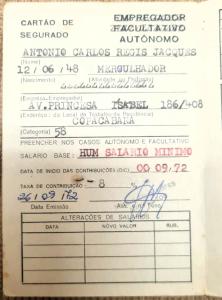 CARTÃO DE SEGURADO
EMPREGADOR
FACULTATIVO
AUTÔNOMO
ANTONIO CARLOS REGIS JACQUES
(Nome)
12/06/48 MERGULHADOR
(Nascimento) (Atividade ou Profissão)
(Empresa/Empregador)
AV. PRINCESA ISABEL 186/408
(Endereço do Local de Trabalho ou Residência)
COPACABANA
(Categoria) 58
PREENCHER NOS CASOS: AUTÔNOMO E FACULTATIVO
SALARIO BASE: HUM SALARIO MINIMO
DATA DE INICIO DAS CONTRIBUIÇÕES (DIC) 00 09.72
TAXA DE CONTRIBUIÇÃO - 8
26/09/72
Data Emissão
ALTERAÇÕES DE SALÁRIOS
DATA NOVO VALOR RUB.